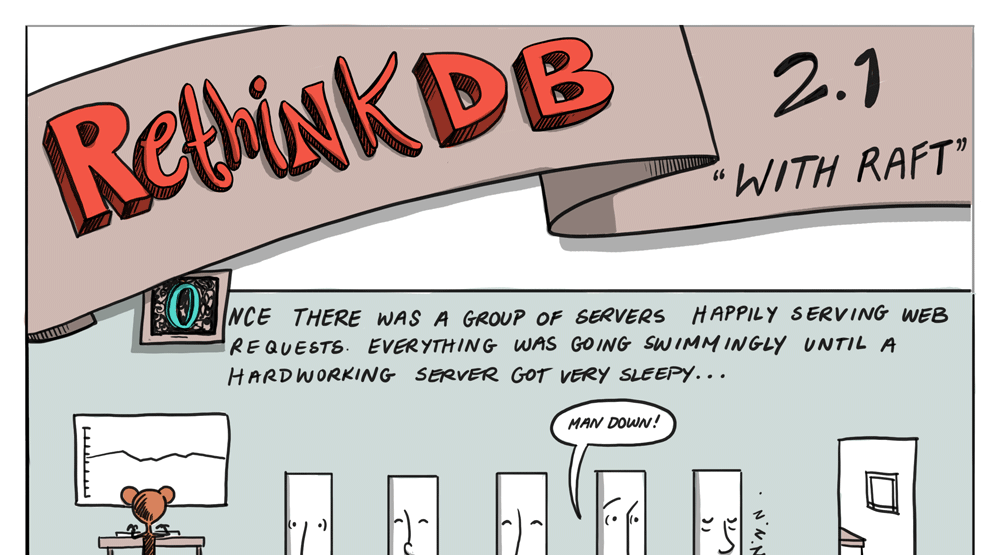 RethinK DB
2.1
“WITH RAFT”
ONCE THERE WAS A GROUP OF SERVERS HAPPILY SERVING WEB
REQUESTS. EVERYTHING WAS GOING SWIMMINGLY UNTIL A
HARDWORKING SERVER GOT VERY SLEEPY...
MAN DOWN!